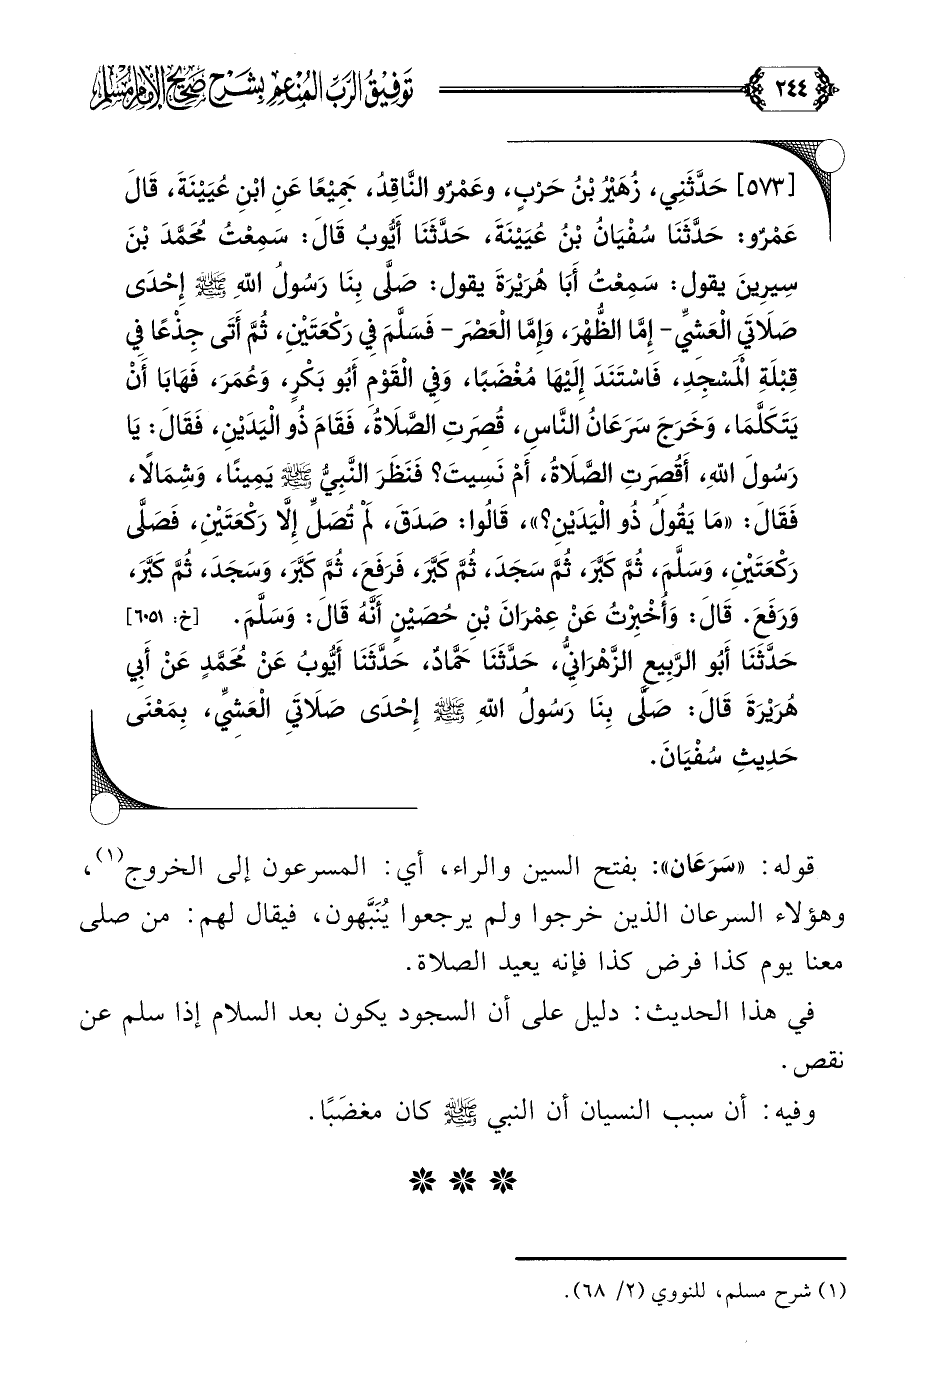 ٢٤٤
توفيق الرب المنعم بشرح صحيح الإمام مسلم
[٥٧٣] حَدَّثَنِي، زُهَيْرُ بْنُ حَرْبٍ، وعَمْرٌو النَّاقِدُ، جَمِيْعًا عَنِ ابْنِ عُيَيْنَةَ، قَالَ
عَمْرٌو: حَدَّثَنَا سُفْيَانُ بْنُ عُيَيْنَةَ، حَدَّثَنَا أَيُّوبُ قَالَ: سَمِعْتُ مُحَمَّدَ بْنَ
سِيرِينَ يقول: سَمِعْتُ أَبَا هُرَيْرَةَ يقول: صَلَّى بِنَا رَسُولُ اللهِ ﷺ إِحْدَى
صَلَاتَيِ الْعَشِيِّ- إِمَّا الظُّهْرَ، وَإِمَّا الْعَصْرَ- فَسَلَّمَ فِي رَكْعَتَيْنِ، ثُمَّ أَتَى جِذْعًا فِي
قِبْلَةِ الْمَسْجِدِ، فَاسْتَنَدَ إِلَيْهَا مُغْضَبًا، وَفِي الْقَوْمِ أَبُو بَكْرٍ، وَعُمَرَ، فَهَابَا أَنْ
يَتَكَلَّمَا، وَخَرَجَ سَرَعَانُ النَّاسِ، قُصِرَتِ الصَّلَاةُ، فَقَامَ ذُو الْيَدَيْنِ، فَقَالَ: يَا
رَسُولَ اللهِ، أَقُصِرَتِ الصَّلَاةُ، أَمْ نَسِيتَ؟ فَنَظَرَ النَّبِيُّ ﷺ يَمِينًا، وَشِمَالًا،
فَقَالَ: «مَا يَقُولُ ذُو الْيَدَيْنِ؟»، قَالُوا: صَدَقَ، لَمْ تُصَلِّ إِلَّا رَكْعَتَيْنِ، فَصَلَّى
رَكْعَتَيْنِ، وَسَلَّمَ، ثُمَّ كَبَّرَ، ثُمَّ سَجَدَ، ثُمَّ كَبَّرَ، فَرَفَعَ، ثُمَّ كَبَّرَ، وَسَجَدَ، ثُمَّ كَبَّرَ،
وَرَفَعَ. قَالَ: وَأُخْبِرْتُ عَنْ عِمْرَانَ بْنِ حُصَيْنٍ أَنَّهُ قَالَ: وَسَلَّمَ. [خ: ٦٠٥١]
حَدَّثَنَا أَبُو الرَّبِيعِ الزَّهْرَانِيُّ، حَدَّثَنَا حَمَّادٌ، حَدَّثَنَا أَيُّوبُ عَنْ مُحَمَّدٍ عَنْ أَبِي
هُرَيْرَةَ قَالَ: صَلَّى بِنَا رَسُولُ اللهِ ﷺ إِحْدَى صَلَاتَيِ الْعَشِيِّ، بِمَعْنَى
حَدِيثِ سُفْيَانَ.
قوله: «سَرَعَان»: بفتح السين والراء، أي: المسرعون إلى الخروج(١)،
وهؤلاء السرعان الذين خرجوا ولم يرجعوا يُنَبَّهون، فيقال لهم: من صلى
معنا يوم كذا فرض كذا فإنه يعيد الصلاة.
في هذا الحديث: دليل على أن السجود يكون بعد السلام إذا سلم عن
نقص.
وفيه: أن سبب النسيان أن النبي ﷺ كان مغضَبًا.
(١) شرح مسلم، للنووي (٢/ ٦٨).